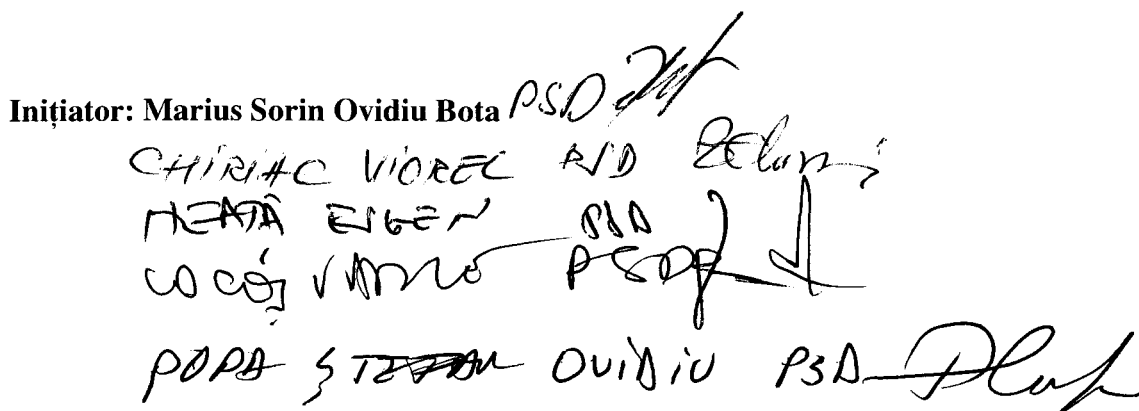 Inițiator: Marius Sorin Ovidiu Bota PSD
CHIRIAC VIOREL PSD
NEAȚĂ EUGEN PSD
COCOȘ VASILE PSD
POPA ȘTEFAN OVIDIU PSD